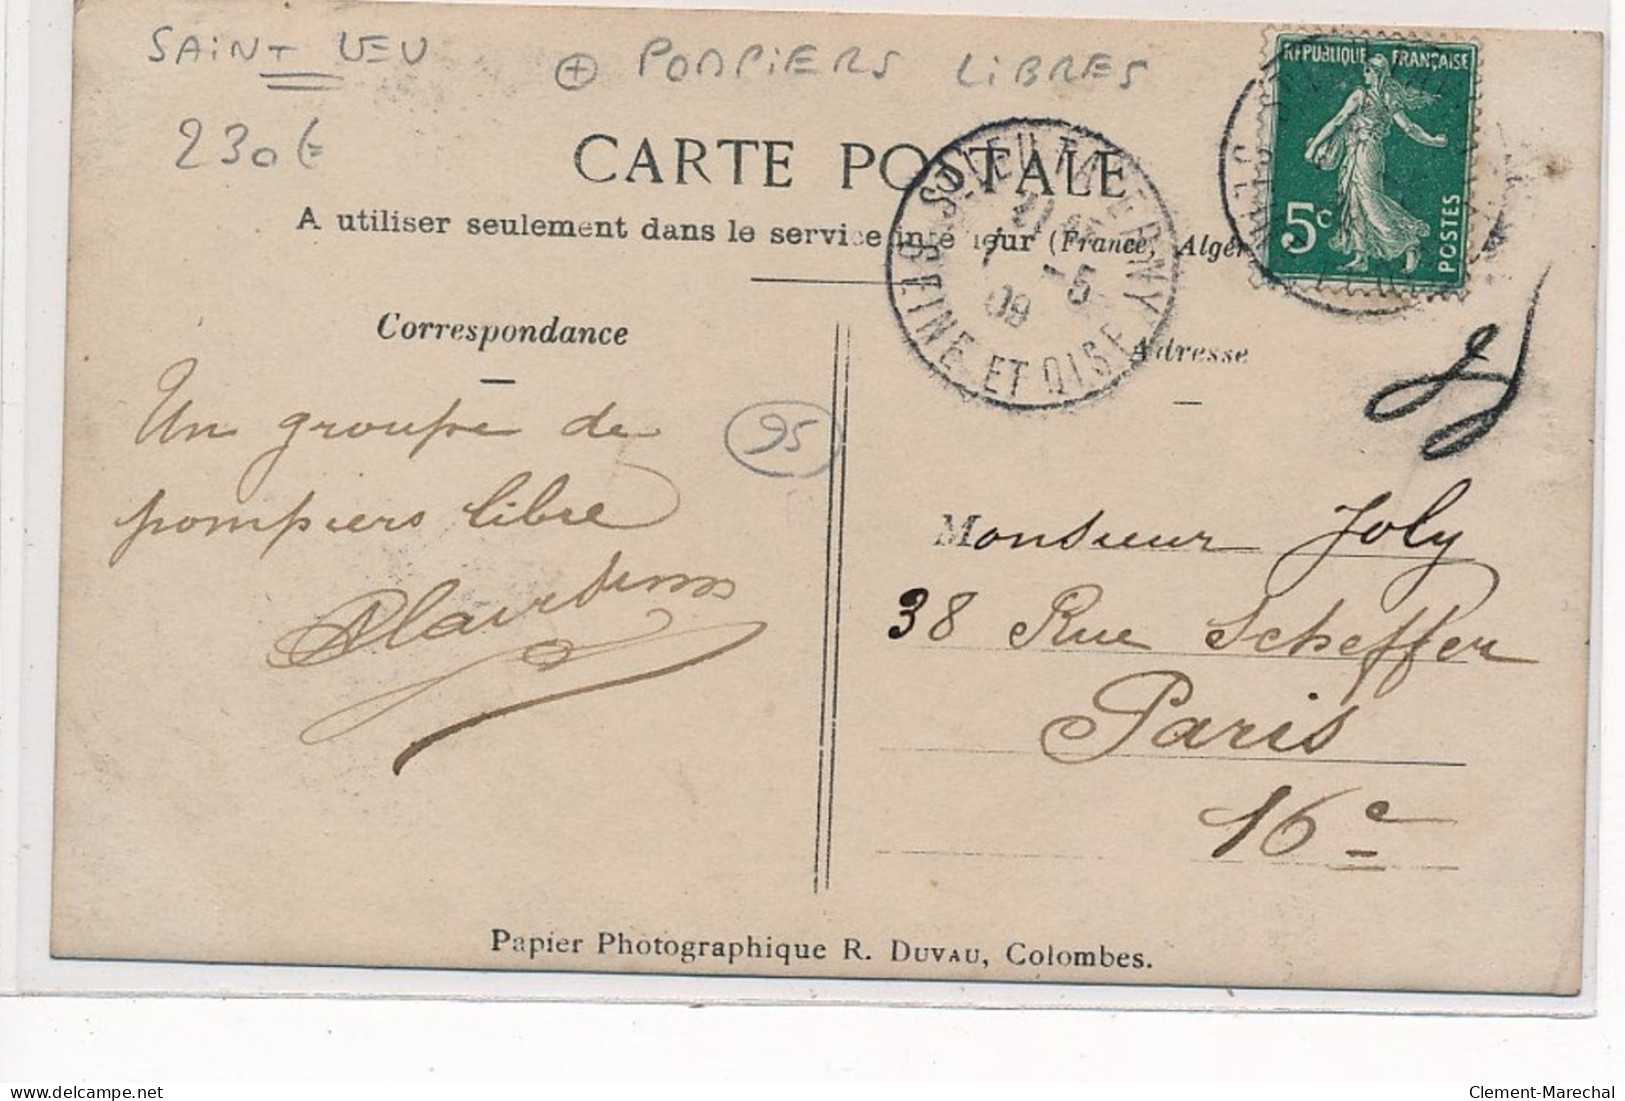 SAINT LEU ⊕ POMPIERS LIBRES
230€
REPUBLIQUE FRANÇAISE
5c
POSTES
CARTE POSTALE
A utiliser seulement dans le service intérieur (France, Algér
ST-LEU-TAVERNY
-5
09
SEINE ET OISE
Correspondance
Adresse
Un groupe de
pompiers libre
95
Monsieur Joly
38 Rue Scheffer
Paris
16e
Papier Photographique R. DUVAU, Colombes.
delcampe.net
Clement-Marechal